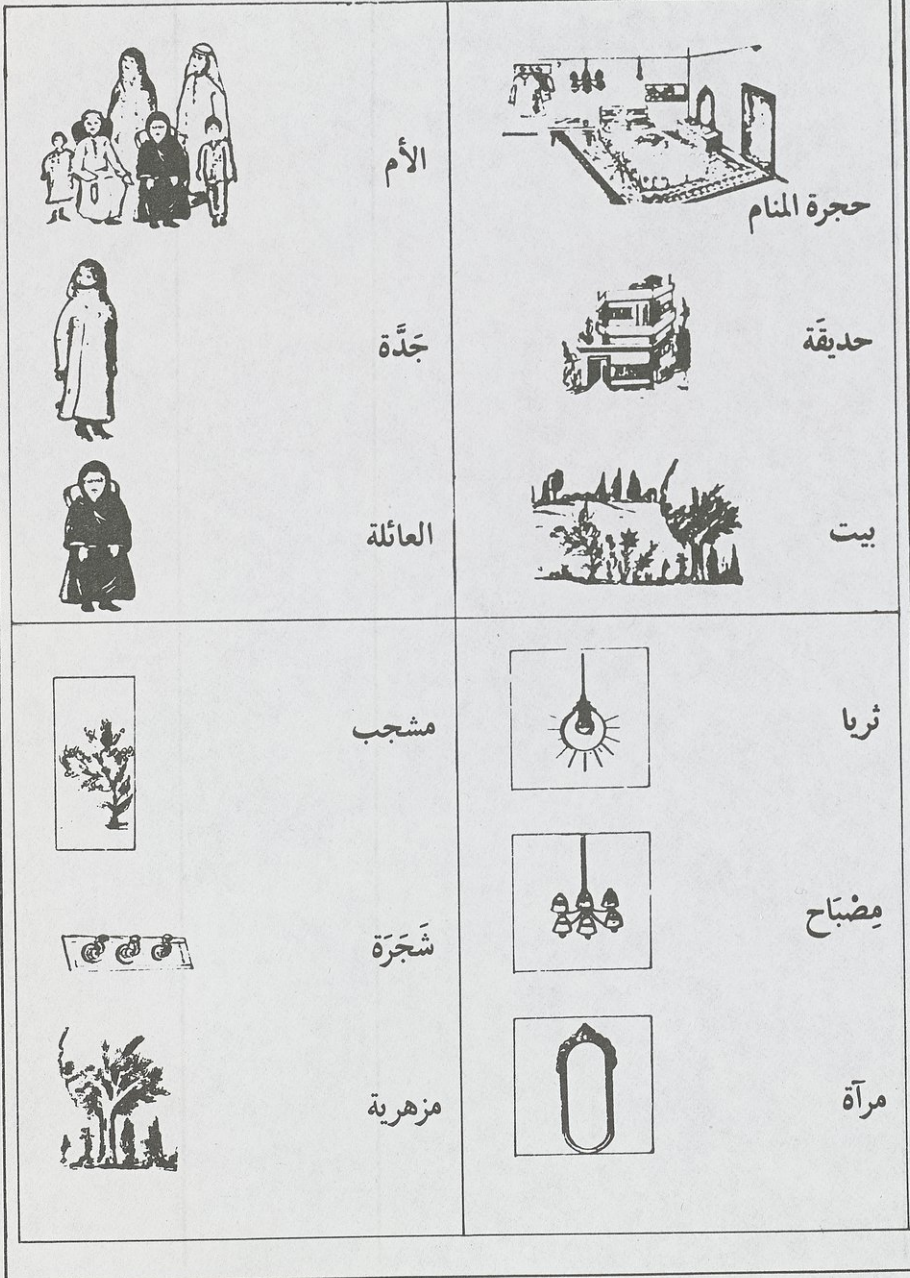 حجرة المنام
حديقَة
بيت
الأم
جَدَّة
العائلة
ثريا
مِصْبَاح
مرآة
مشجب
شَجَرَة
مزهرية